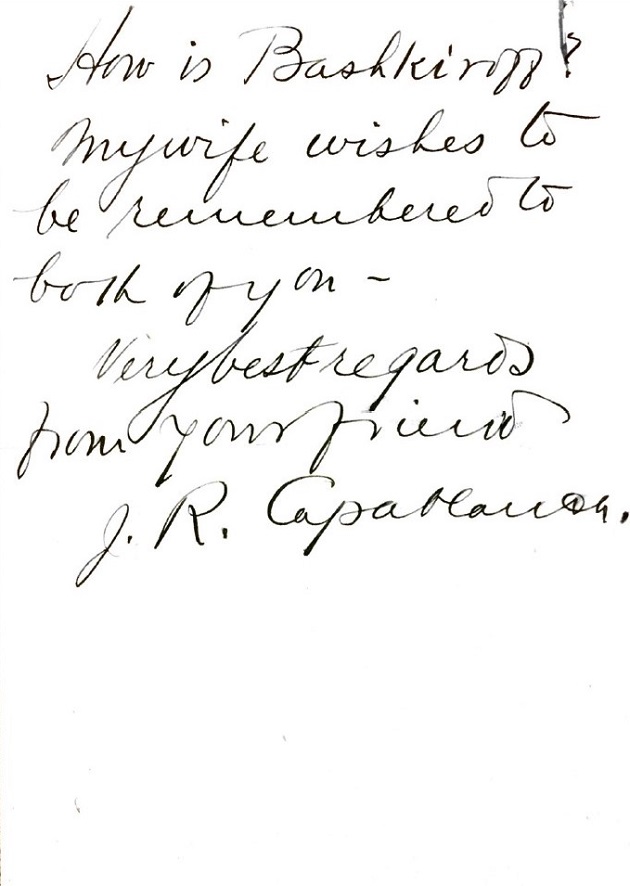 How is Bashkiroff?
My wife wishes to
be remembered to
both of you –
Very best regards
from your friend
J. R. Capablanca.